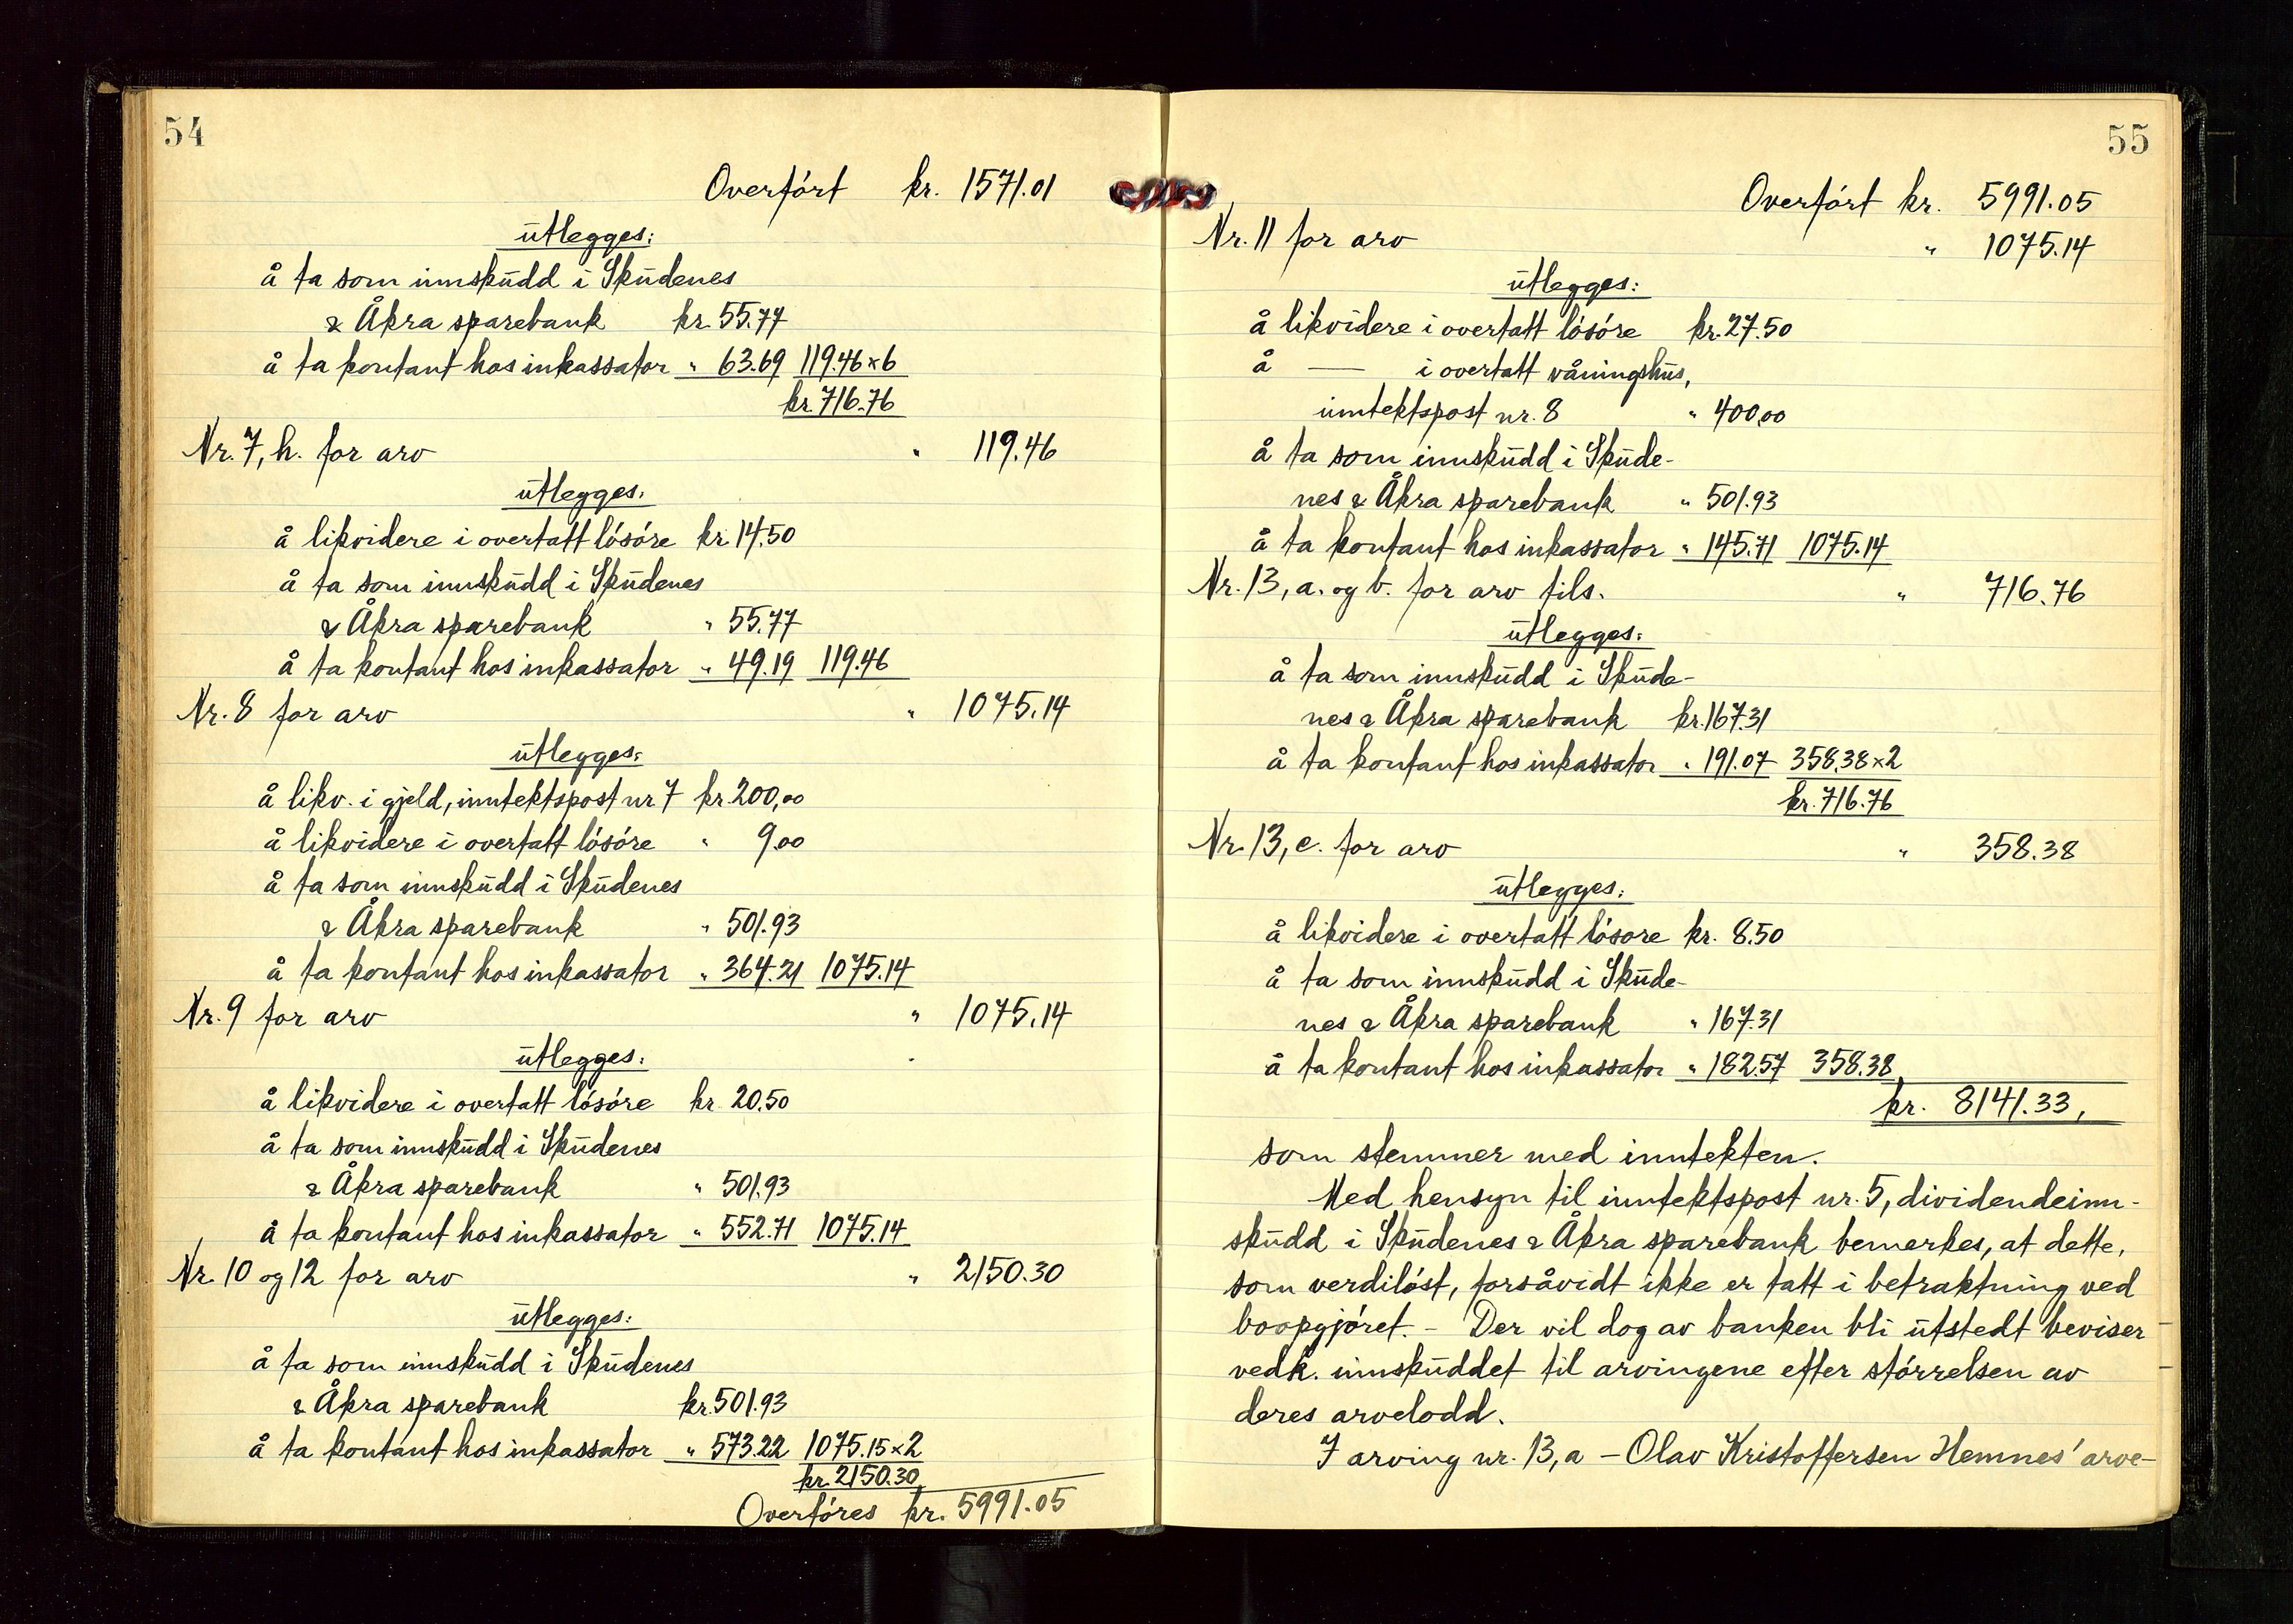 54
Overført kr. 1571.01
utlegges:
å ta som innskudd i Skudenes
& Åkra sparebank kr. 55.77
å ta kontant hos inkassator " 63.69 119.46 x 6
kr. 716.76
Nr. 7, h. for arv " 119.46
utlegges:
å likvidere i overtatt løsøre kr. 14.50
å ta som innskudd i Skudenes
& Åkra sparebank " 55.77
å ta kontant hos inkassator " 49.19 119.46
Nr. 8 for arv " 1075.14
utlegges:
å likv. i gjeld, inntektspost nr 7 kr. 200,00
å likvidere i overtatt løsøre " 9.00
å ta som innskudd i Skudenes
& Åkra sparebank " 501.93
å ta kontant hos inkassator " 364.21 1075.14
Nr. 9 for arv " 1075.14
utlegges:
å likvidere i overtatt løsøre kr. 20.50
å ta som innskudd i Skudenes
& Åkra sparebank " 501.93
å ta kontant hos inkassator " 552.71 1075.14
Nr. 10 og 12 for arv " 2150.30
utlegges:
å ta som innskudd i Skudenes
& Åkra sparebank kr. 501.93
å ta kontant hos inkassator " 573.22 1075.15 x 2
kr. 2150.30
Overføres kr. 5991.05
55
Overført kr. 5991.05
Nr. 11 for arv " 1075.14
utlegges:
å likvidere i overtatt løsøre kr. 27.50
å — i overtatt våningshus,
inntektspost nr. 8 " 400,00
å ta som innskudd i Skude-
nes & Åkra sparebank " 501.93
å ta kontant hos inkassator " 145.71 1075.14
Nr. 13, a. og b. for arv tils. " 716.76
utlegges:
å ta som innskudd i Skude-
nes & Åkra sparebank kr. 167.31
å ta kontant hos inkassator " 191.07 358.38 x 2
kr. 716.76
Nr. 13, c. for arv " 358.38
utlegges:
å likvidere i overtatt løsøre kr. 8.50
å ta som innskudd i Skude-
nes & Åkra sparebank " 167.31
å ta kontant hos inkassator " 182.57 358.38
kr. 8141.33,
som stemmer med inntekten.
Med hensyn til inntektspost nr. 5, dividendeinn-
skudd i Skudenes & Åkra sparebank bemerkes, at dette,
som verdiløst, forsåvidt ikke er tatt i betraktning ved
boopgjøret. - Der vil dog av banken bli utstedt beviser
vedk. innskuddet til arvingene efter størrelsen av
deres arvelodd.
I arving nr. 13, a - Olav Kristoffersen Hemnes' arve-